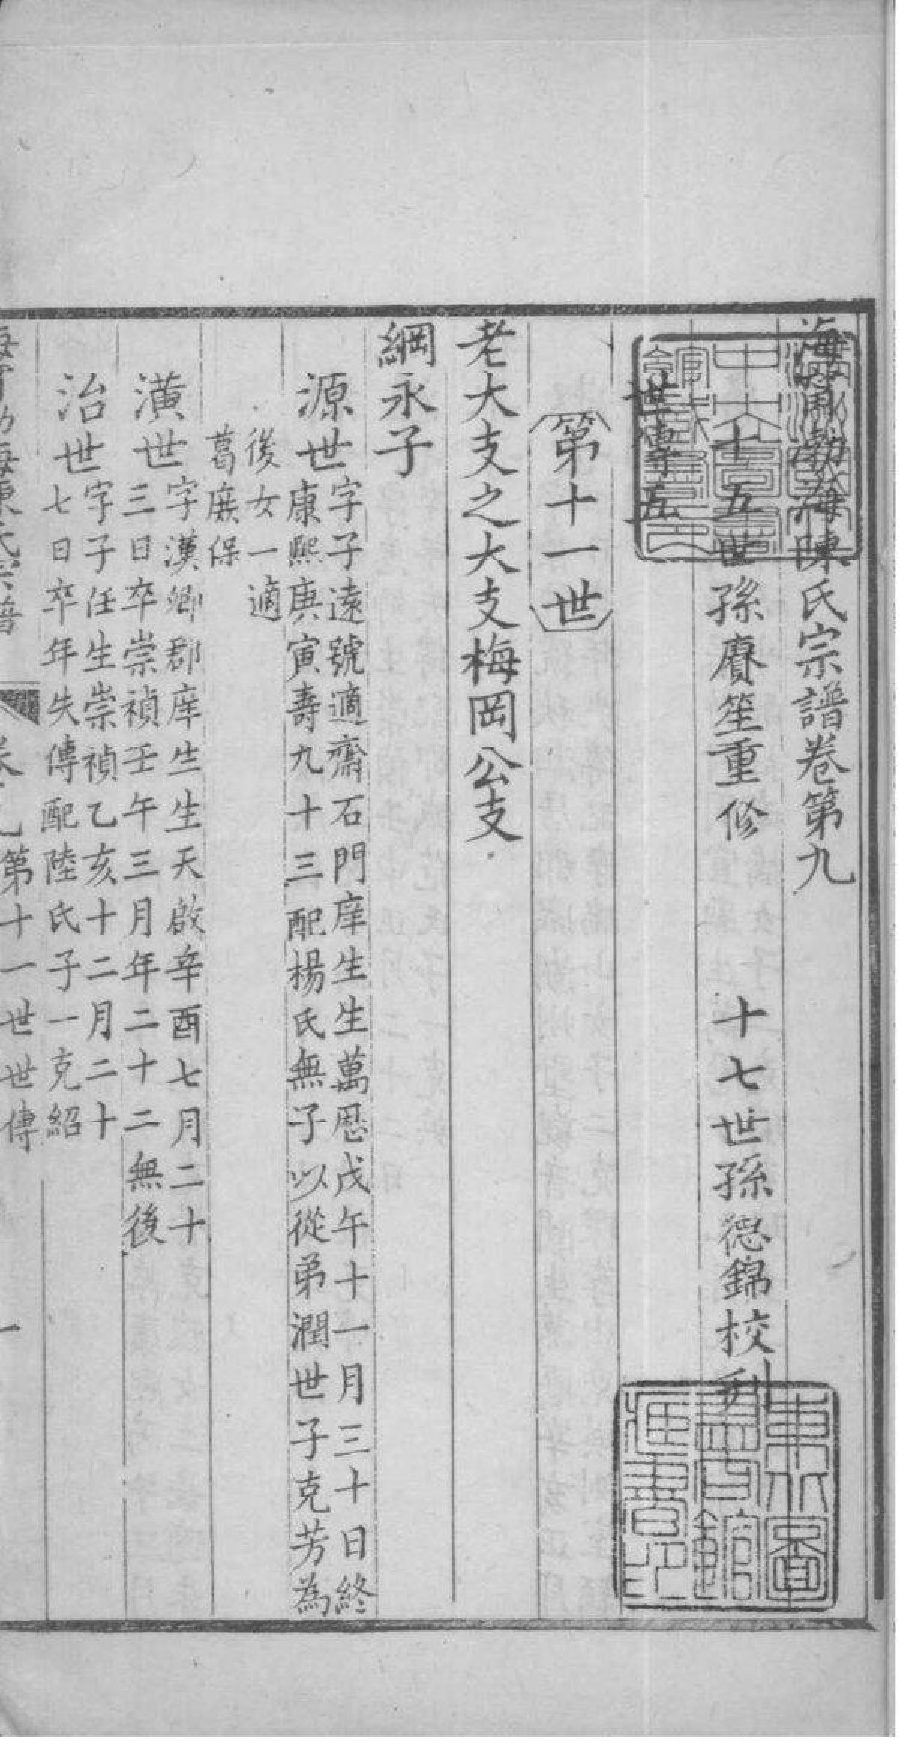 海寧渤海陳氏宗譜卷第九
十五世孫賡笙重修　十七世孫德錦校刋
世傳五
第十一世
老大支之大支梅岡公支
綱永子
源世字子遠號適齋石門庠生生萬厯戊午十一月三十日終
康熙庚寅壽九十三配楊氏無子以從弟潤世子克芳為
後女一適
葛庶保
潢世字漢卿郡庠生生天啟辛酉七月二十
三日卒崇禎壬午三月年二十二無後
治世字子任生崇禎乙亥十二月二十
七日卒年失傳配陸氏子一克紹
海寧渤海陳氏宗譜　卷九第十一世世傳　一
東北圖
書館
藏書印